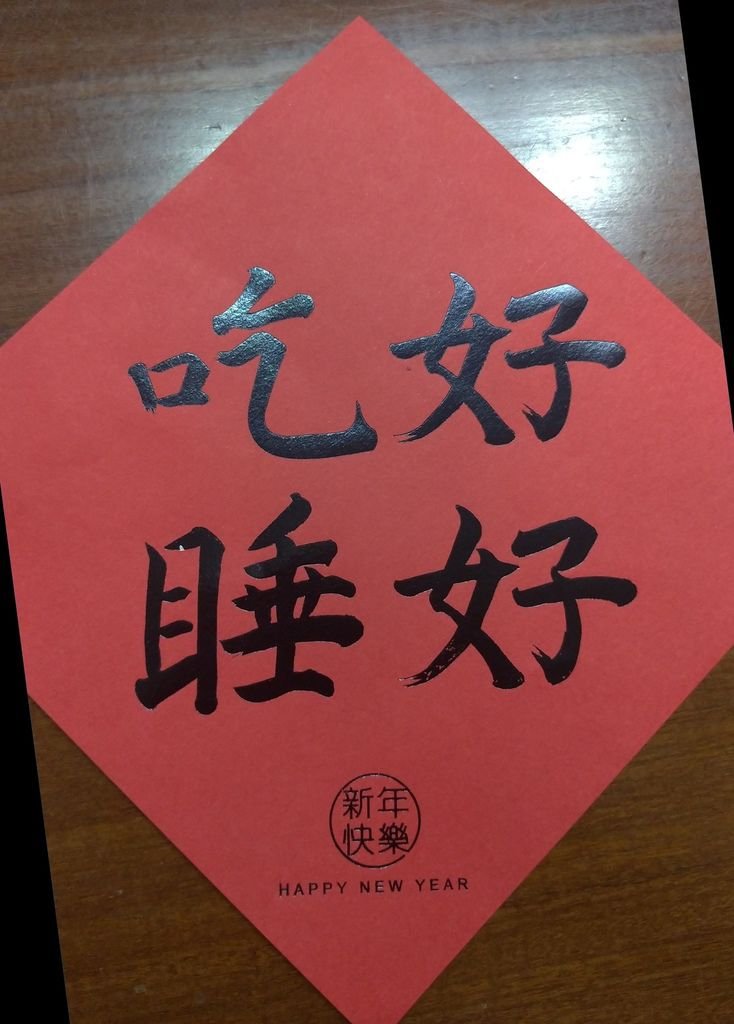 吃好
睡好
新年
快樂
HAPPY NEW YEAR